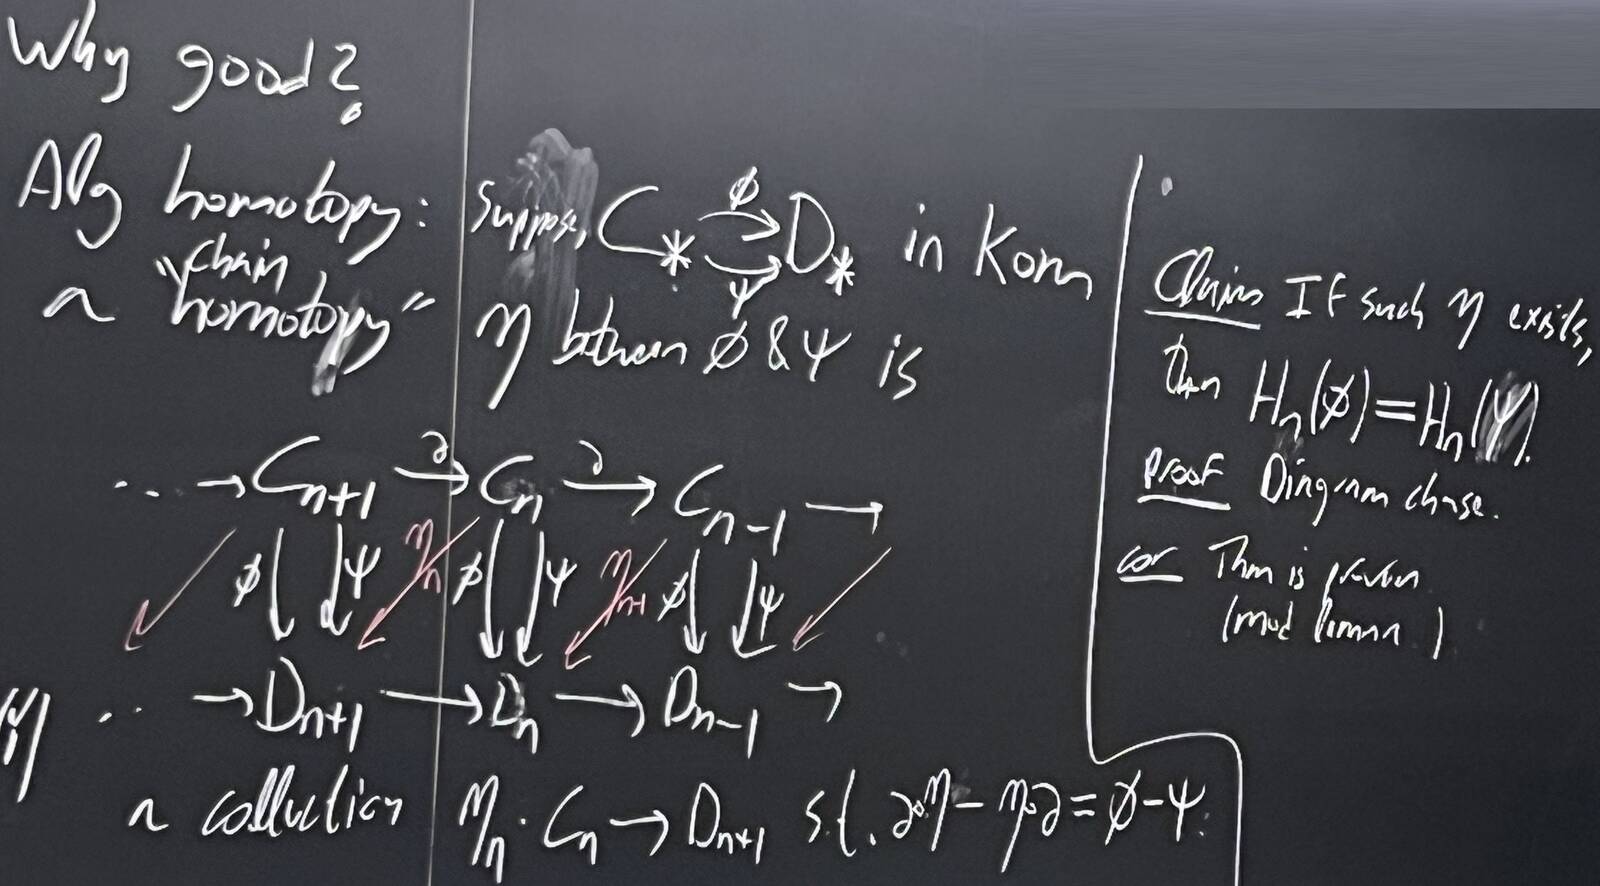 Why good?
Alg homotopy: Suppose, C_* ϕ ψ D_* in Kom
a "chain homotopy" η between ϕ & ψ is
... → C_{n+1} →∂ C_n →∂ C_{n-1} →
ϕ ψ η_n ϕ ψ η_{n-1} ϕ ψ
... → D_{n+1} → D_n → D_{n-1} →
a collection η_n: C_n → D_{n+1} s.t. ∂∘η - η∘∂ = ϕ - ψ.
Claim If such η exists,
then H_n(ϕ) = H_n(ψ).
Proof Diagram chase.
Cor Thm is proven
(mod lemma)